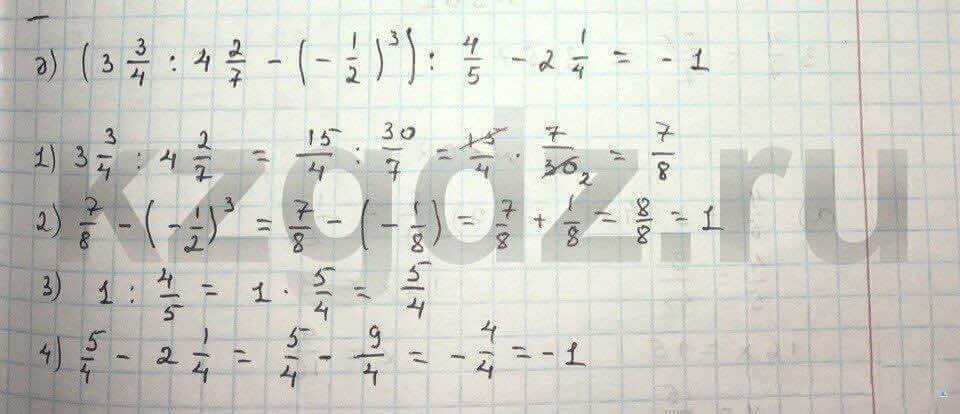 д) (3 3/4 : 4 2/7 - (- 1/2)³) : 4/5 - 2 1/4 = - 1
1) 3 3/4 : 4 2/7 = 15/4 : 30/7 = 15/4 · 7/30 2 = 7/8
2) 7/8 - (- 1/2)³ = 7/8 - (- 1/8) = 7/8 + 1/8 = 8/8 = 1
3) 1 : 4/5 = 1 · 5/4 = 5/4
4) 5/4 - 2 1/4 = 5/4 - 9/4 = - 4/4 = - 1
kzgdz.ru